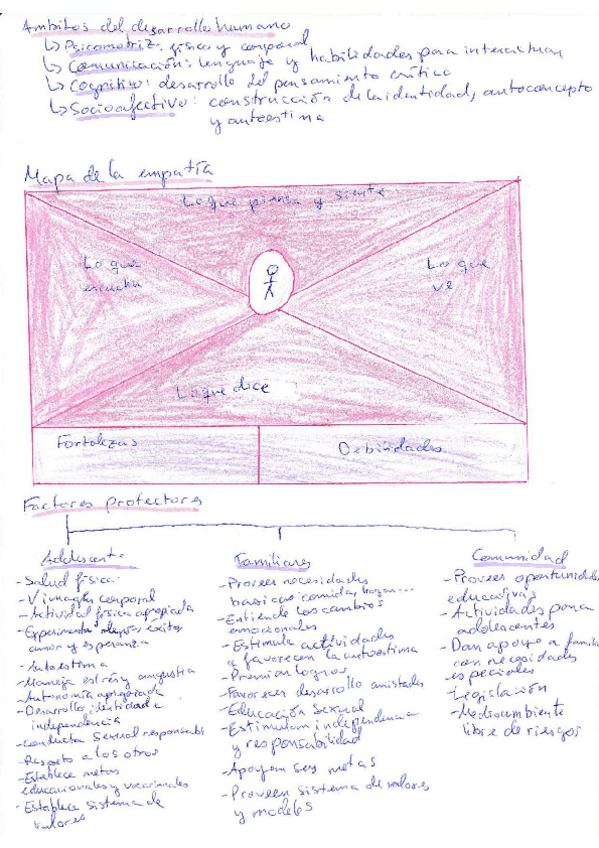 Ambitos del desarrollo humano
↳ Psicomotriz: físico y corporal
↳ Comunicación: lenguaje y habilidades para interactuar
↳ Cognitivo: desarrollo del pensamiento crítico
↳ Socioafectivo: construcción de la identidad, autoconcepto
y autoestima
Mapa de la empatía
Lo que piensa y siente
Lo que
escucha
Lo que
ve
Lo que dice
Fortalezas
Debilidades
Factores protectores
Adolescente
- Salud física
- imagen corporal
- Actividad física apropiada
- Experimenta alegrías éxitos
amor y esperanza
- Autoestima
- Maneja estrés y angustia
- Autonomía apropiada
- Desarrollo identidad e
independencia
- Conducta sexual responsable
- Respeto a los otros
- Establece metas
educacionales y vocacionales
- Establece sistema de
valores
Familiares
- Proveer necesidades
basicas: comida, hogar...
- Entiende los cambios
emocionales
- Estimula actividades
q favorecen la autoestima
- Premian logros
- Favorecer desarollo amistades
- Educación sexual
- Estimulan independencia
y responsabilidad
- Apoyan sus metas
- Proveen sistema de valores
y modelos
Comunidad
- Proveer oportunidades
educativas
- Actividades para
adolescentes
- Dan apoyo a familias
con necesidades
especiales
- Legislación
- Medioambiente
libre de riesgos